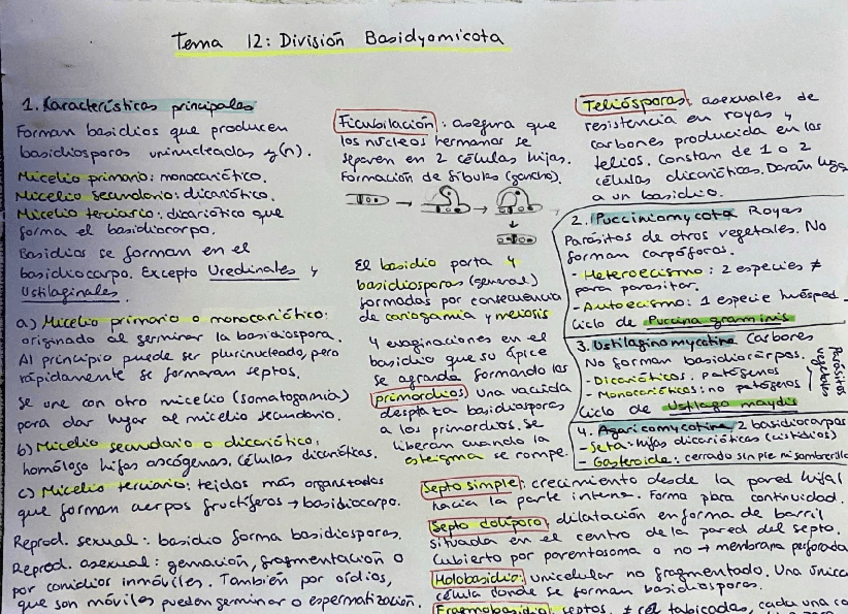 Tema 12: División Basidyomicota
1. Características principales
Forman basidios que producen
basidiosporas uninucleadas y (n).
Micelio primario: monocariótico.
Micelio secundario: dicariótico.
Micelio terciario: dicariótico que
forma el basidiocarpo.
Basidios se forman en el
basidiocarpo. Excepto Uredinales y
Ustilaginales.
a) Micelio primario o monocariótico:
originado al germinar la basidiospora.
Al principio puede ser plurinucleado, pero
rápidamente se formaran septos.
Se une con otro micelio (somatogamia)
para dar lugar al micelio secundario.
b) Micelio secundario o dicariótico:
homólogo hifas ascógenas. Células dicarióticas.
c) Micelio terciario: tejidos más organizados
que forman cuerpos fructíferos → basidiocarpo.
Reprod. sexual: basidio forma basidiosporas.
Reprod. asexual: gemación, fragmentación o
por conidios inmóviles. También por oídios,
que son móviles pueden germinar o espermatización.
Ficubilación: asegura que
los núcleos hermanos se
separen en 2 células hijas.
Formación de fíbulas (gancho).
El basidio porta 4
basidiosporas (general)
formadas por consecuencia
de cariogamia y meiosis
4 evaginaciones en el
basidio que su ápice
se agranda formando los
primordios. Una vacuola
desplaza basidiosporas
a los primordios. Se
liberan cuando la
esterigma se rompe.
Telióspora: asexuales de
resistencia en royas y
carbones producida en los
telios. Constan de 1 o 2
células dicarióticas. Darán lugar
a un basidio.
2. Pucciniomycota Royas
Parásitos de otros vegetales. No
forman carpóforos.
- Heteroecismo: 2 especies ≠
para parasitar.
- Autoecismo: 1 especie huésped.
Ciclo de Puccina graminis
3. Ustilaginomycotina Carbones
No forman basidiocarpos.
- Dicarióticos: patógenos
- Monocarióticos: no patógenos
Parásitos
vegetales
Ciclo de Ustilago maydis
4. Agaricomycotina 2 basidiocarpos
- Seta: hifas dicarióticas (cistidios)
- Gasteroide: cerrado sin pie ni sombrerillo
Septo simple: crecimiento desde la pared hifal
hacia la parte interna. Forma para continuidad.
Septo dolíporo: dilatación en forma de barril
situada en el centro de la pared del septo.
Cubierto por parentosoma o no → membrana perforada
Holobasidio: unicelular no fragmentado. Una única
célula donde se forman basidiosporas.
Fragmobasidio: septos, ≠ cél tabicadas, cada una